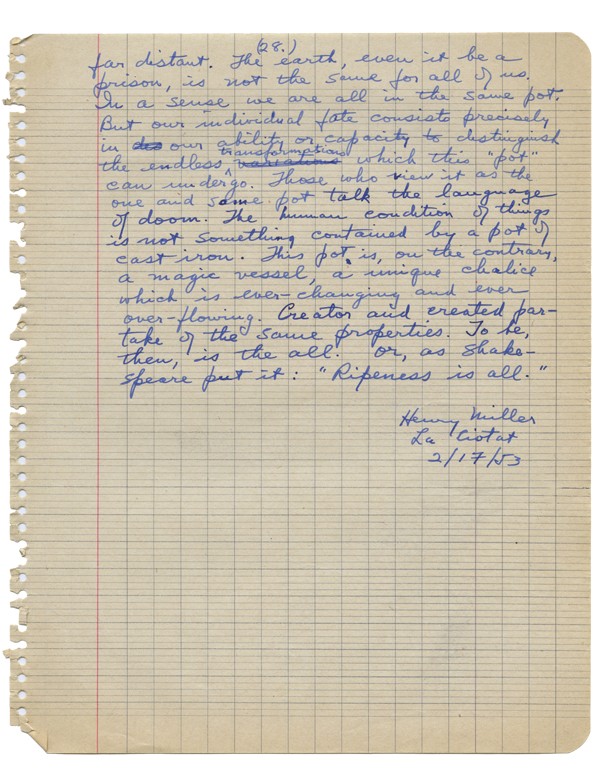 (28.)
far distant. The earth, even it be a
prison, is not the same for all of us.
In a sense we are all in the same pot.
But our individual fate consists precisely
in our ability or capacity to distinguish
the endless transformations variations which this "pot"
can undergo. Those who view it as the
one and same pot talk the language
of doom. The human condition of things
is not something contained by a pot of
cast iron. This pot is, on the contrary,
a magic vessel, a unique chalice
which is ever-changing and ever
over-flowing. Creator and created par-
take of the same properties. To be,
then, is the all. Or, as Shake-
speare put it: "Ripeness is all."
Henry Miller
La Ciotat
2/17/53